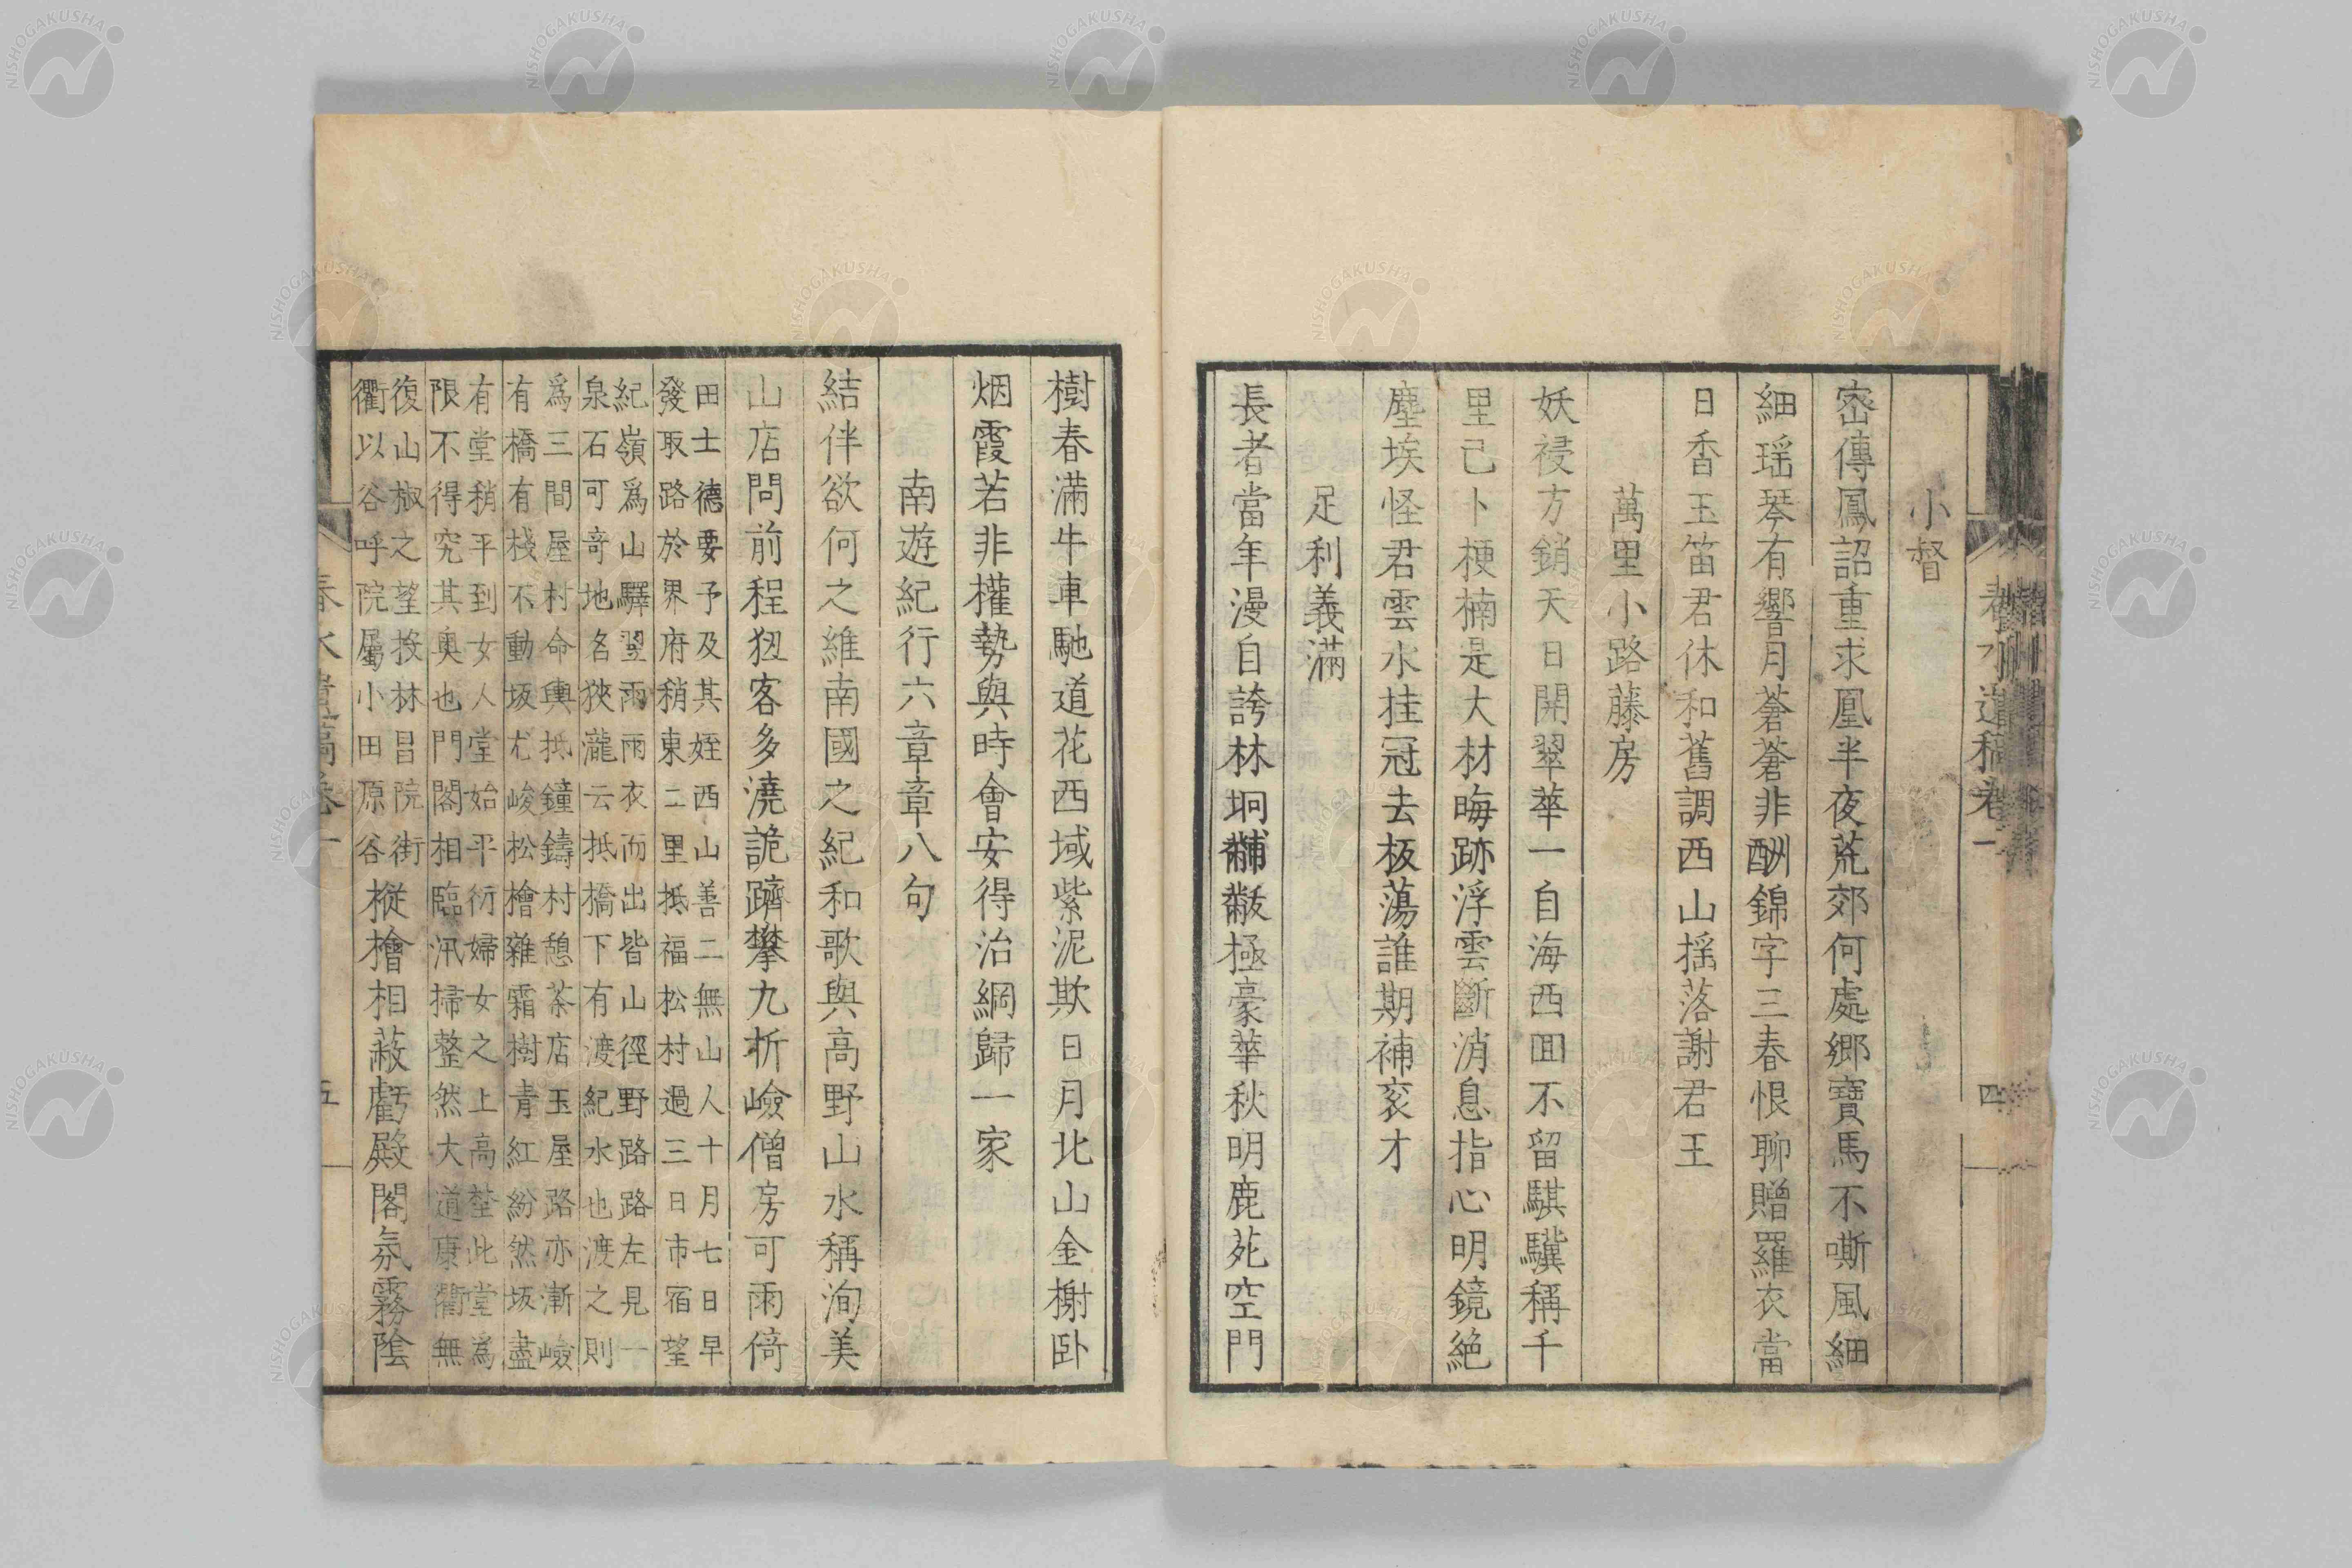 小督
密傳鳳詔重求凰半夜荒郊何處鄉寶馬不嘶風細
細瑶琴有響月蒼蒼非酬錦字三春恨聊贈羅衣當
日香玉笛君休和舊調西山揺落謝君王
萬里小路藤房
妖祲方銷天日開翠華一自海西囬不留騏驥稱千
里已卜梗楠是大材晦跡浮雲斷消息指心明鏡絶
塵埃怪君雲水挂冠去板蕩誰期補袞才
足利義滿
長者當年漫自誇林坰黼黻極豪華秋明鹿苑空門
樹春滿牛車馳道花西域紫泥欺日月北山金榭卧
烟霞若非權勢與時會安得治綱歸一家
南遊紀行六章章八句
結伴欲何之維南國之紀和歌與高野山水稱洵美
山店問前程狃客多澆詭躋攀九折嶮僧房可雨倚
田士德要予及其姪西山善二無山人十月七日早
發取路於界府稍東二里抵福松村過三日市宿望
紀嶺爲山驛翌雨雨衣而出皆山徑野路路左見一
泉石可奇地名狹瀧云抵橋下有渡紀水也渡之則
爲三間屋村命輿抵鐘鑄村憩茶店玉屋路亦漸嶮
有橋有棧不動坂尤峻松檜雜霜樹青紅紛然坂盡
有堂稍平到女人堂始平衍婦女之上高埜此堂爲
限不得究其奥也門閣相臨汛掃整然大道康衢無
復山椒之望投林昌院街
衢以谷呼院屬小田原谷
樅檜相蔽虧殿閣氛霧陰
春水遺稿卷一
四
五
NISHOGAKUSHA